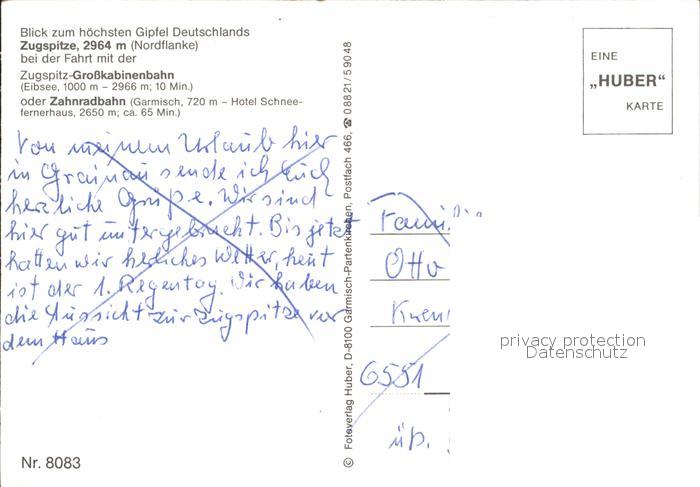 Blick zum höchsten Gipfel Deutschlands
Zugspitze, 2964 m (Nordflanke)
bei der Fahrt mit der
Zugspitz-Großkabinenbahn
(Eibsee, 1000 m – 2966 m; 10 Min.)
oder Zahnradbahn (Garmisch, 720 m – Hotel Schnee-
fernerhaus, 2650 m; ca. 65 Min.)
Von meinem Urlaub hier
in Grainau sende ich Euch
herzliche Grüße. Wir sind
hier gut untergebracht. Bis jetzt
hatten wir herliches Wetter, heut
ist der 1. Regentag. Wir haben
die Aussicht zur Zugspitze vor
dem Haus
Nr. 8083
© Fotoverlag Huber, D-8100 Garmisch-Partenkirchen, Postfach 466, ☎ 08821/59048
EINE
„HUBER"
KARTE
Famili
Otto
6551
üb.
privacy protection
Datenschutz